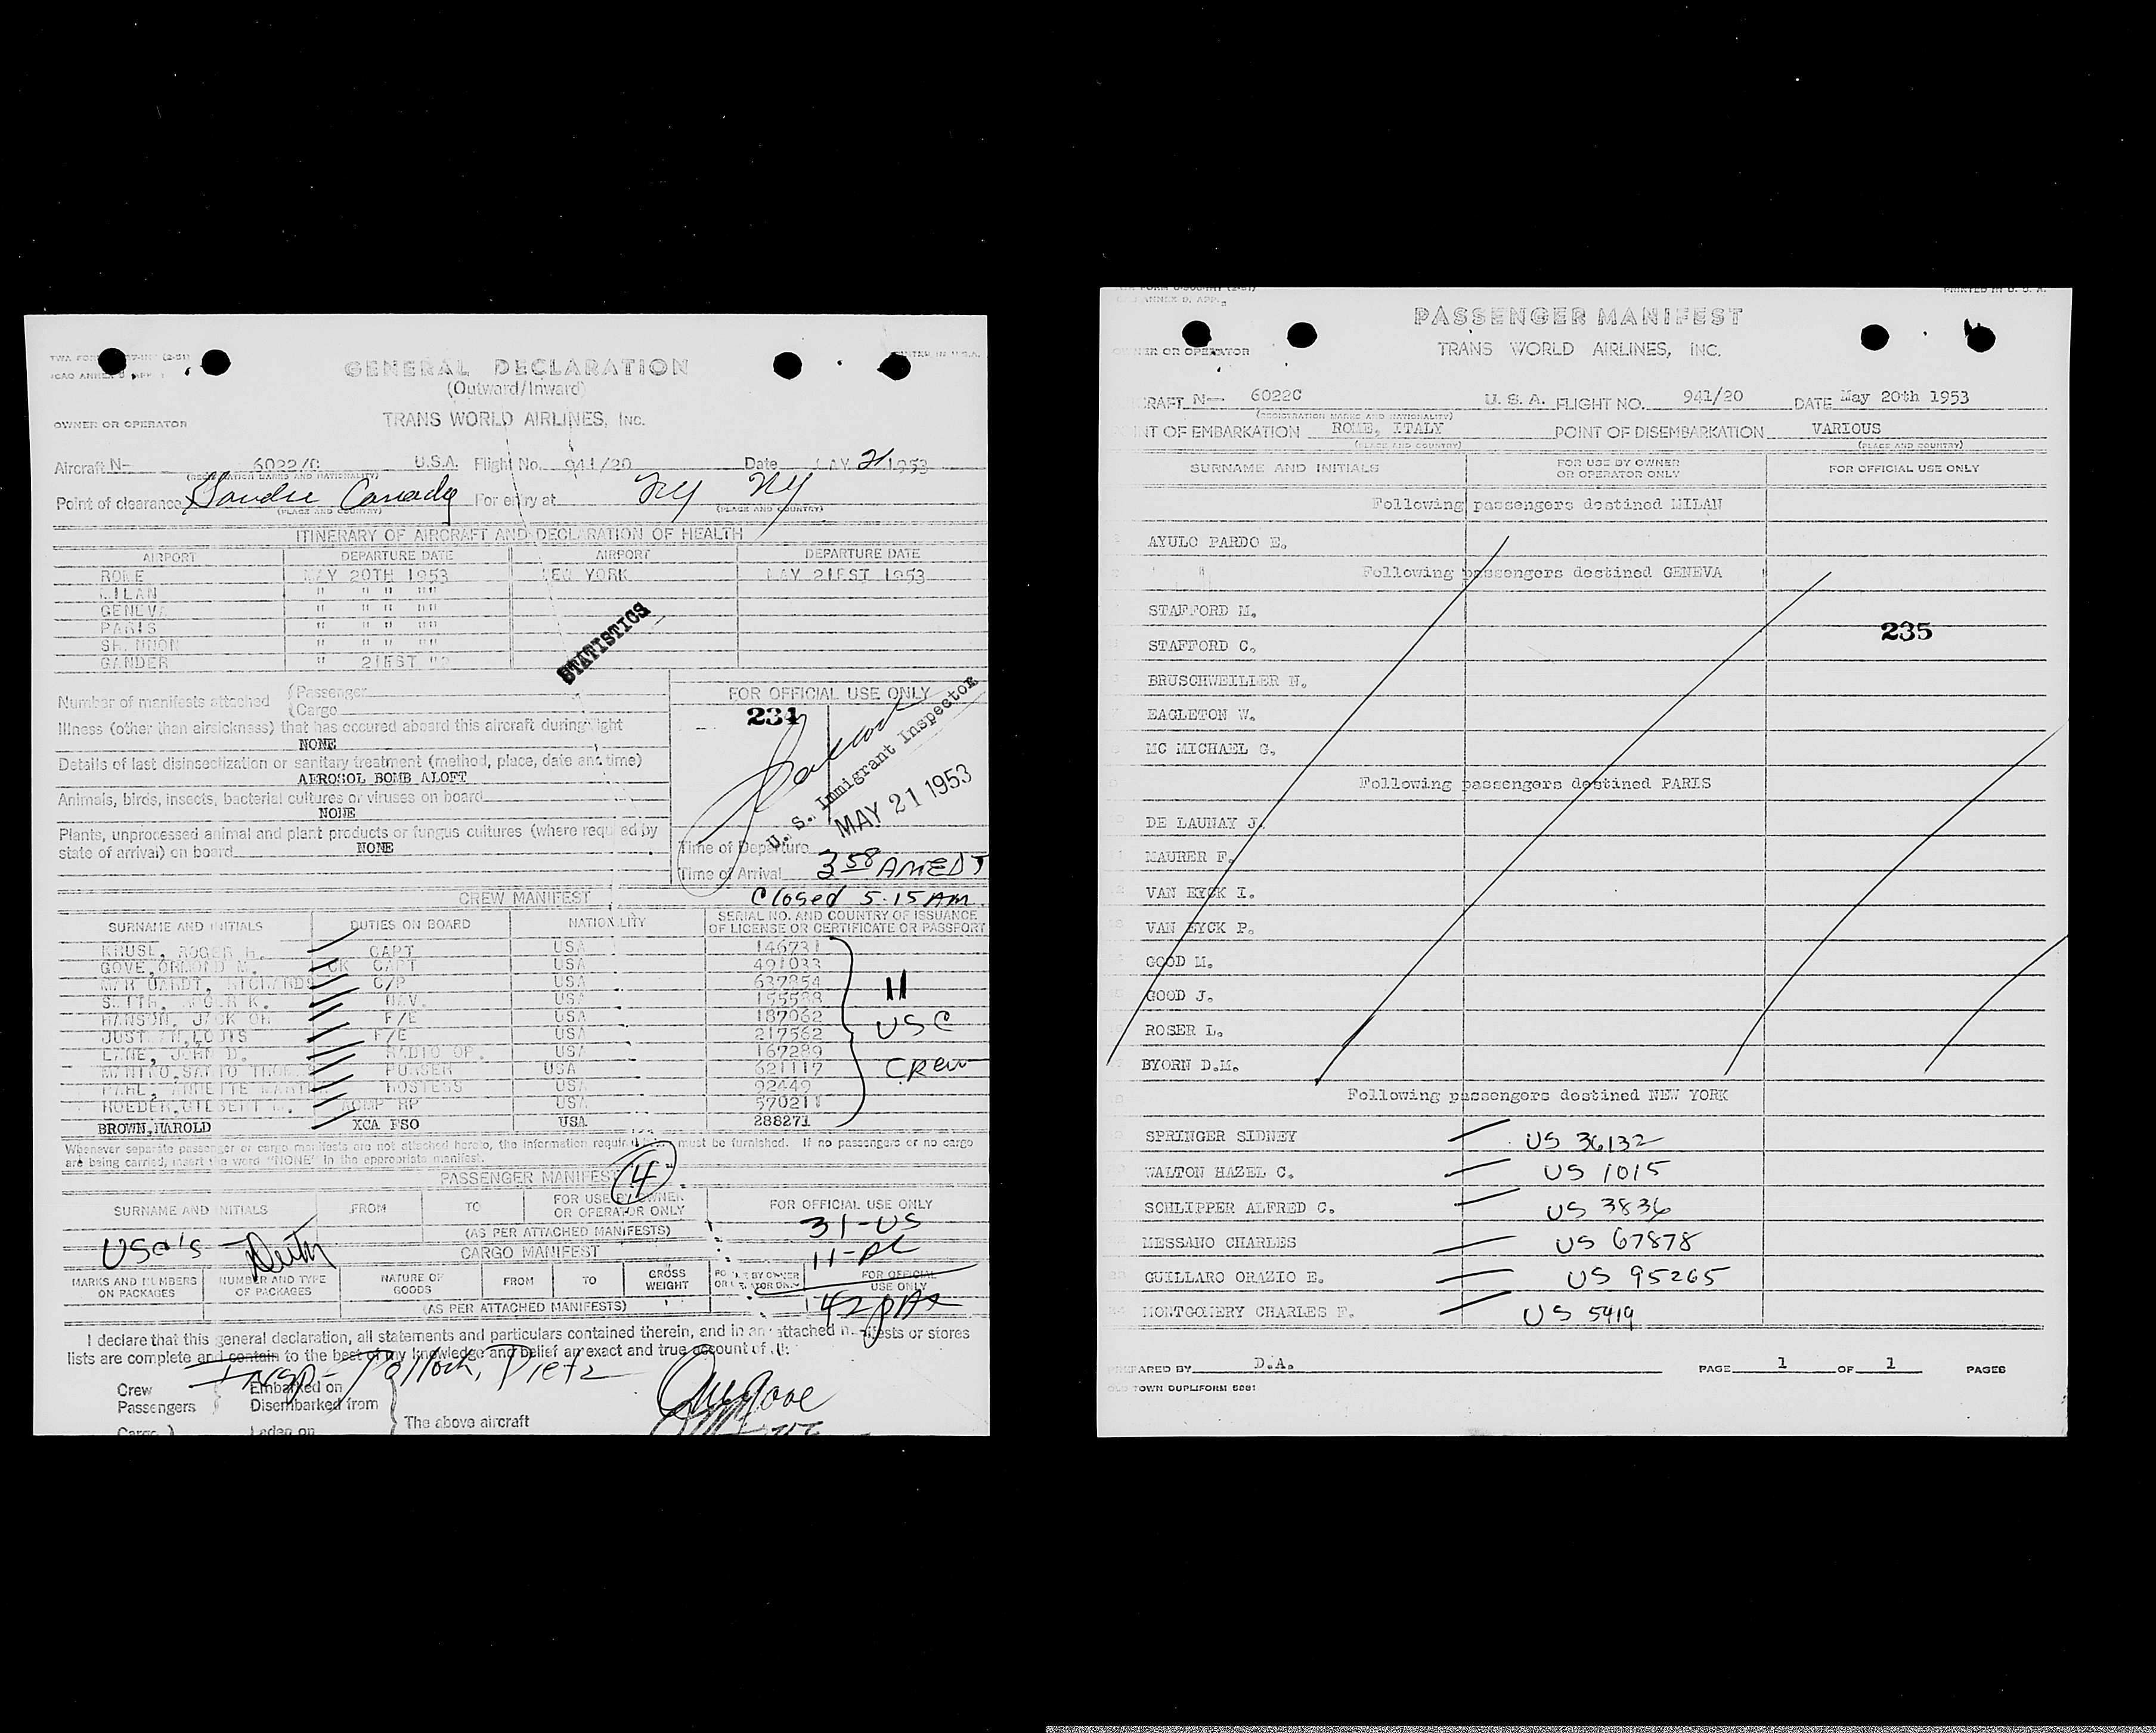 GENERAL DECLARATION
(Outward/Inward)
TRANS WORLD AIRLINES, Inc.
OWNER OR OPERATOR
Aircraft N- 6022/C U.S.A. Flight No. 941/20 Date MAY 21 1953
(REGISTRATION MARKS AND NATIONALITY)
Point of clearance For entry at NY NY
(PLACE AND COUNTRY) (PLACE AND COUNTRY)
ITINERARY OF AIRCRAFT AND DECLARATION OF HEALTH
AIRPORT DEPARTURE DATE AIRPORT DEPARTURE DATE
ROME MAY 20TH 1953 NEW YORK MAY 21EST 1953
MILAN " " " ""
GENEVA " " " ""
PARIS " " " ""
SHANNON " " " ""
GANDER " 21EST ""
STATISTICS
Number of manifests attached (Passenger
(Cargo
Illness (other than airsickness) that has occured aboard this aircraft during flight
NONE
Details of last disinsectization or sanitary treatment (method, place, date and time)
AEROSOL BOMB ALOFT
Animals, birds, insects, bacterial cultures or viruses on board
NONE
Plants, unprocessed animal and plant products or fungus cultures (where required by
state of arrival) on board NONE
FOR OFFICIAL USE ONLY
234
U. S. Immigrant Inspector
MAY 21 1953
Time of Departure
Time of Arrival 3 58 AM EDT
Closed 5.15 AM.
CREW MANIFEST
SURNAME AND INITIALS DUTIES ON BOARD NATIONALITY SERIAL NO. AND COUNTRY OF ISSUANCE
OF LICENSE OR CERTIFICATE OR PASSPORT
KRUSE, ROGER H. CAPT USA 146731
GOVE, ORMOND M. CK CAPT USA 491033
C/P USA 637254
NAV. USA 155588
HANSON, JACK F/E USA 187062
LOUIS F/E USA 217562
LANE, JOHN D. RADIO OP. USA 167289
PURSER USA 621117
HOSTESS USA 92449
USA 570211
BROWN, HAROLD XCA FSO USA 288271
11
USC
Crew
Whenever separate passenger or cargo manifests are not attached hereto, the information required must be furnished. If no passengers or no cargo
are being carried, insert the word "NONE" in the appropriate manifest.
PASSENGER MANIFEST 4
SURNAME AND INITIALS FROM TO FOR USE BY OWNER
OR OPERATOR ONLY FOR OFFICIAL USE ONLY
(AS PER ATTACHED MANIFESTS) 31-US
USC's
CARGO MANIFEST 11-AL
MARKS AND NUMBERS
ON PACKAGES NUMBER AND TYPE
OF PACKAGES NATURE OF
GOODS FROM TO GROSS
WEIGHT FOR USE BY OWNER
OR OPERATOR ONLY FOR OFFICIAL
USE ONLY
(AS PER ATTACHED MANIFESTS) 42 pax
I declare that this general declaration, all statements and particulars contained therein, and in any attached manifests or stores
lists are complete and contain to the best of my knowledge and belief an exact and true account of all:
Insp- Pollock, Dietz
Crew Embarked on
Passengers Disembarked from
The above aircraft
Cargo Laden on
PASSENGER MANIFEST
OWNER OR OPERATOR TRANS WORLD AIRLINES, INC.
AIRCRAFT N- 6022C U. S. A. FLIGHT NO. 941/20 DATE May 20th 1953
(REGISTRATION MARKS AND NATIONALITY)
POINT OF EMBARKATION ROME, ITALY POINT OF DISEMBARKATION VARIOUS
(PLACE AND COUNTRY) (PLACE AND COUNTRY)
SURNAME AND INITIALS FOR USE BY OWNER
OR OPERATOR ONLY FOR OFFICIAL USE ONLY
Following passengers destined MILAN
AYULO PARDO E.
Following passengers destined GENEVA
STAFFORD M.
235
STAFFORD C.
BRUSCHWEILLER N.
EAGLETON W.
MC MICHAEL G.
Following passengers destined PARIS
DE LAUNAY J.
MAURER F.
VAN EYCK I.
VAN EYCK P.
GOOD M.
GOOD J.
ROSER L.
BYORN D.M.
Following passengers destined NEW YORK
SPRINGER SIDNEY US 36132
WALTON HAZEL C. US 1015
SCHLIPPER ALFRED C. US 3836
MESSANO CHARLES US 67878
GUILLARO ORAZIO E. US 95265
MONTGOMERY CHARLES F. US 5919
PREPARED BY D.A. PAGE 1 OF 1 PAGES
OLD TOWN DUPLIFORM 5091